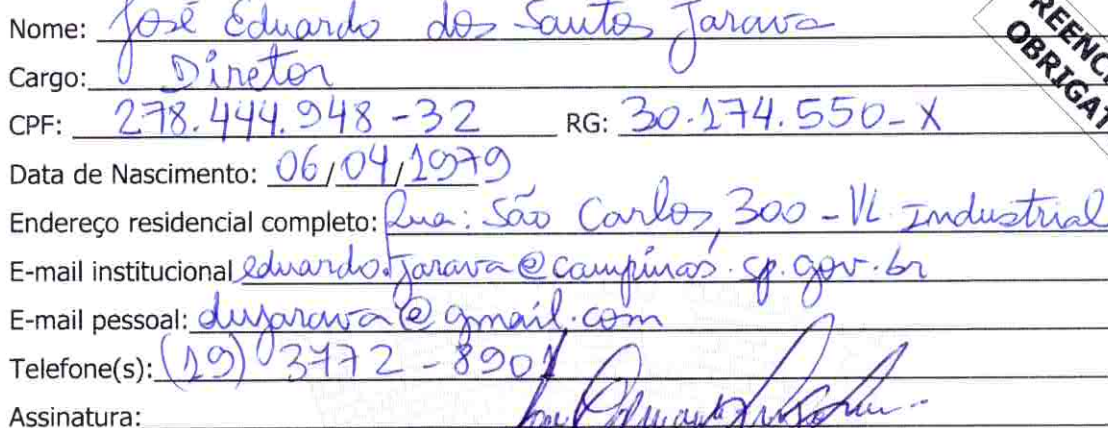 Nome: José Eduardo dos Santos Jarava
Cargo: Diretor
CPF: 278.444.948-32 RG: 30.174.550-X
Data de Nascimento: 06/04/1979
Endereço residencial completo: Rua: São Carlos, 300 - VL Industrial
E-mail institucional eduardo.jarava@campinas.sp.gov.br
E-mail pessoal: dujarava@gmail.com
Telefone(s): (19) 3772-8901
Assinatura: